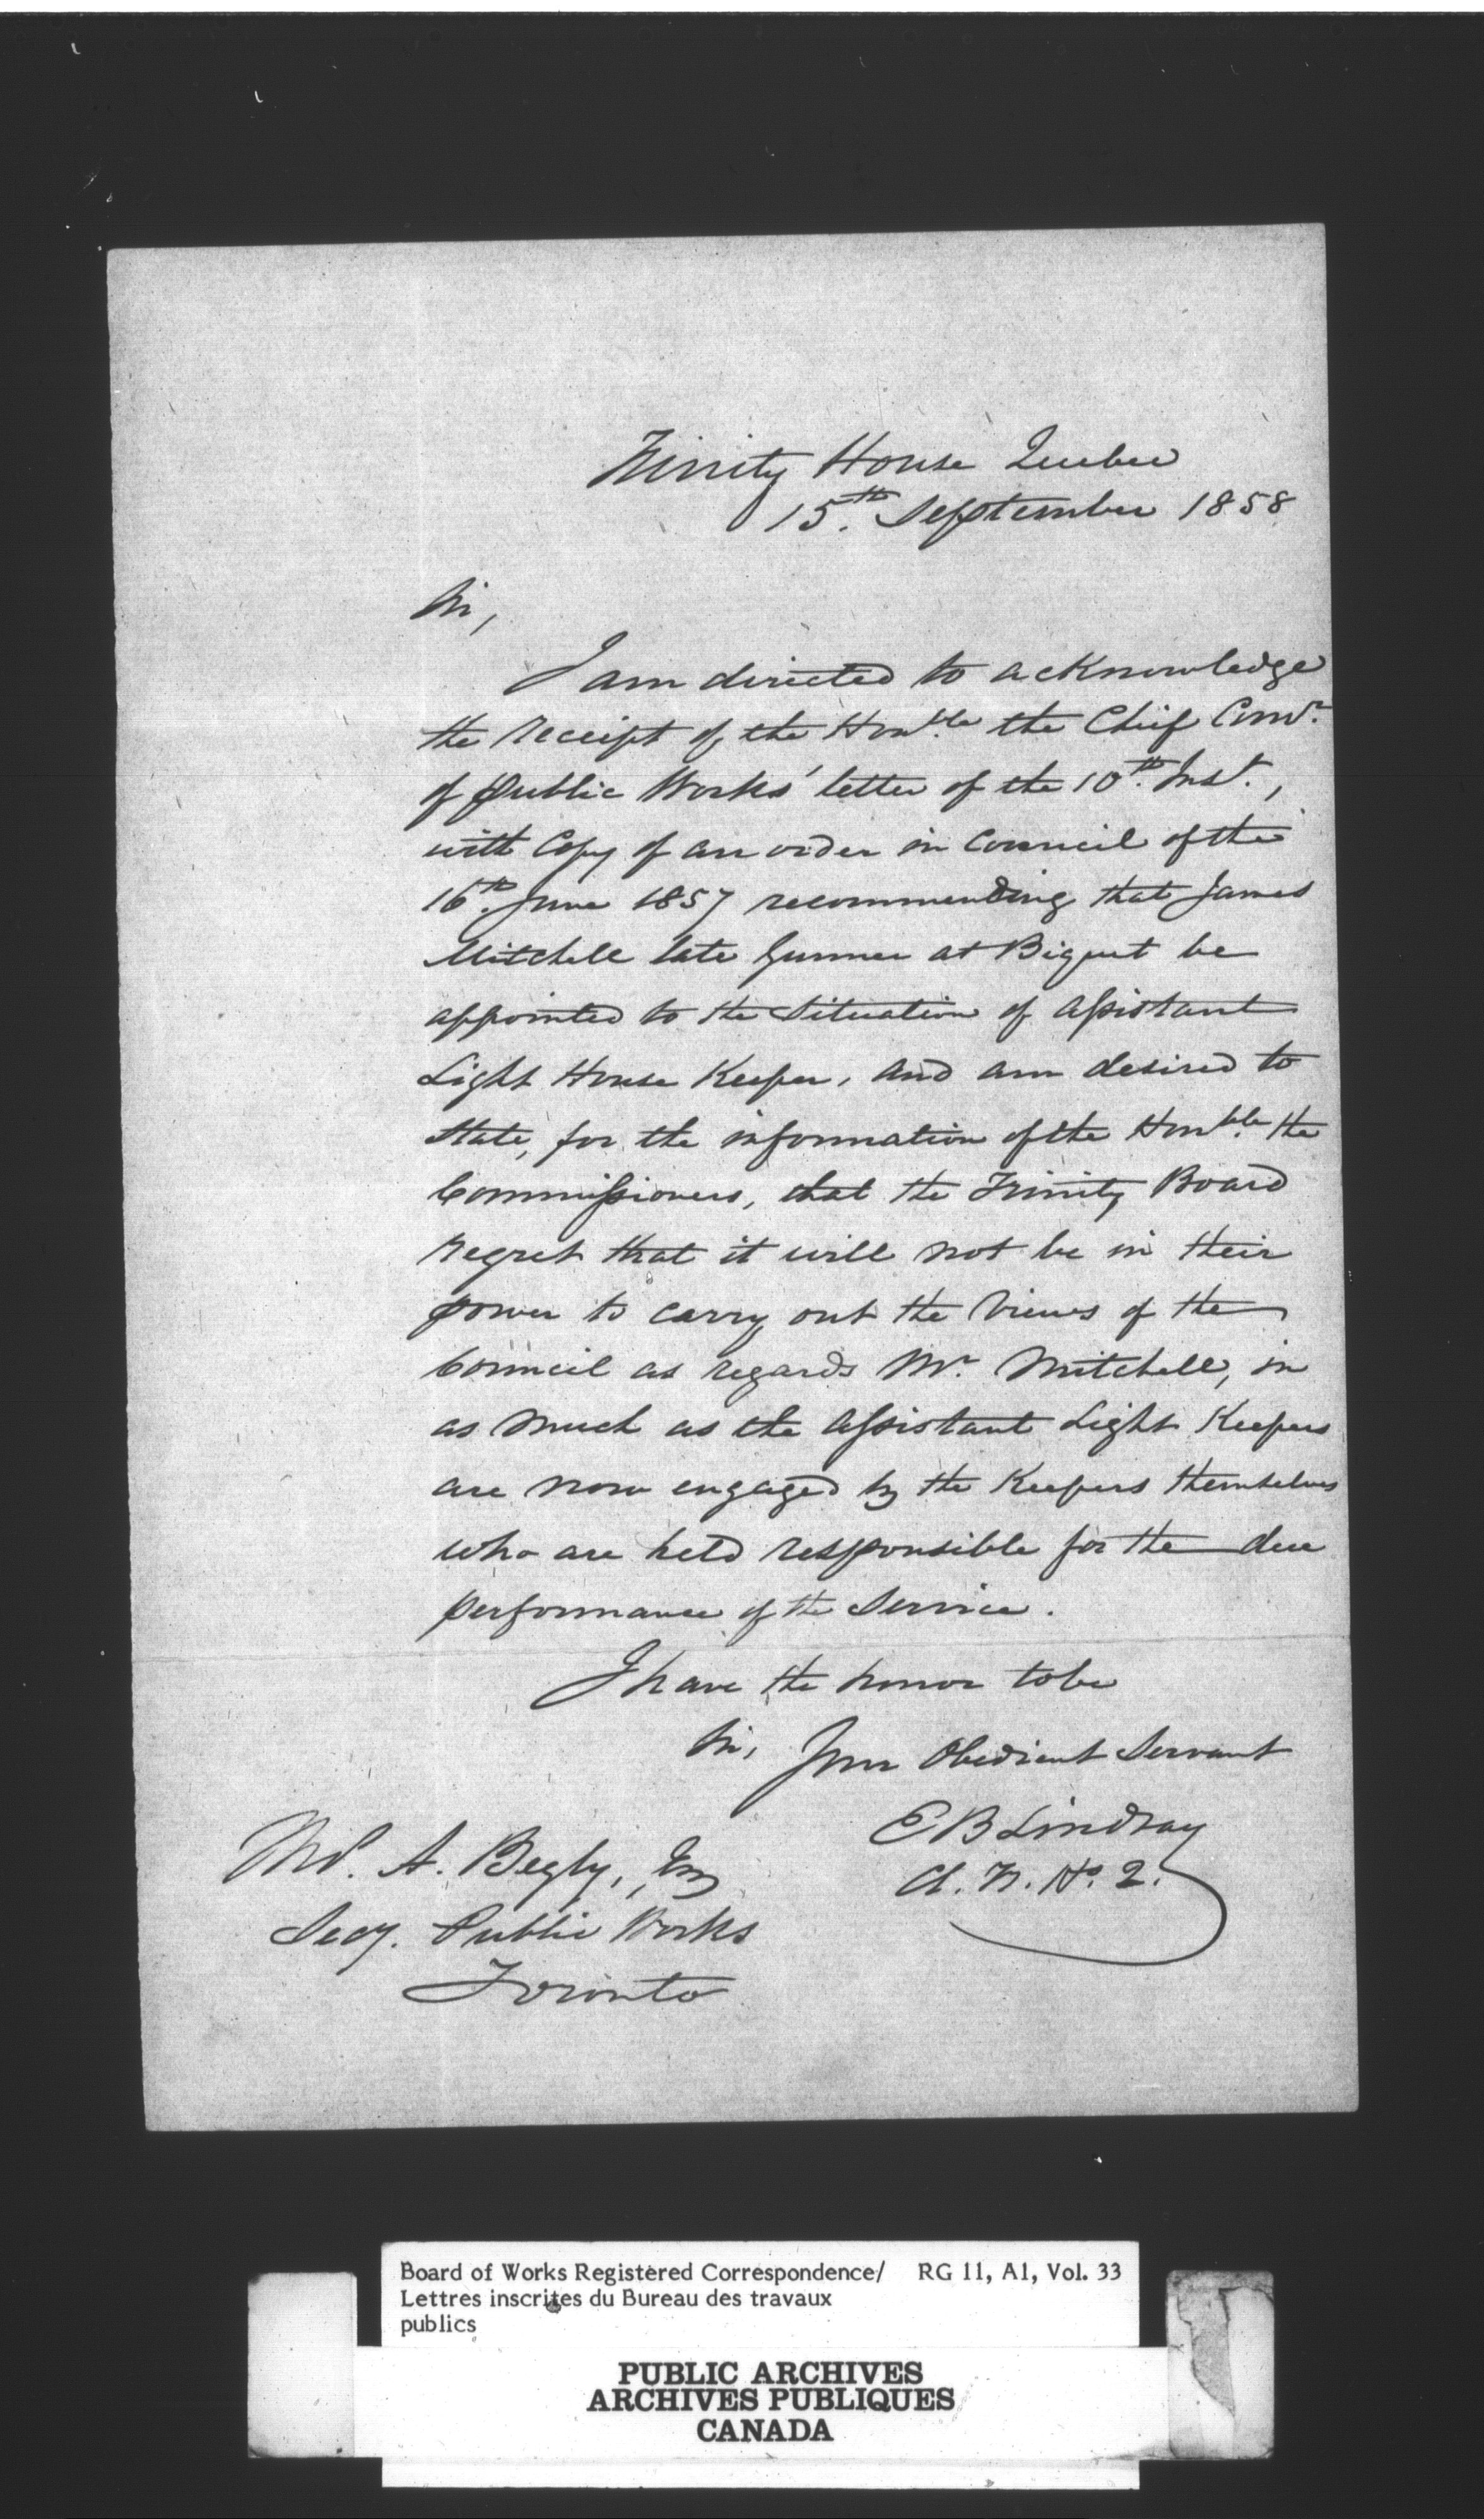 Trinity House Quebec
15th. September 1858
Sir,
I am directed to acknowledge
the receipt of the Honble. the Chief Comr.
of public Works' letter of the 10th. Inst.,
with Copy of an order in Council of the
16th. June 1857 recommending that James
Mitchell late Gunner at Biquet be
appointed to the Situation of assistant
Light House Keeper, and am desired to
State, for the information of the Honble. the
Commissioners, that the Trinity Board
regret that it will not be in their
power to carry out the Views of the
Council as regards Mr. Mitchell, in
as much as the assistant Light Keepers
are now engaged by the Keepers themselves
who are held responsible for the due
performance of the Service.
I have the honor to be
Sir, Your Obedient Servant
E B Lindsay
Cl. T. H. Q.
A. Begly, Esq
Secy. Public Works
Toronto
Board of Works Registered Correspondence/ RG 11, A1, Vol. 33
Lettres inscrites du Bureau des travaux
publics
PUBLIC ARCHIVES
ARCHIVES PUBLIQUES
CANADA